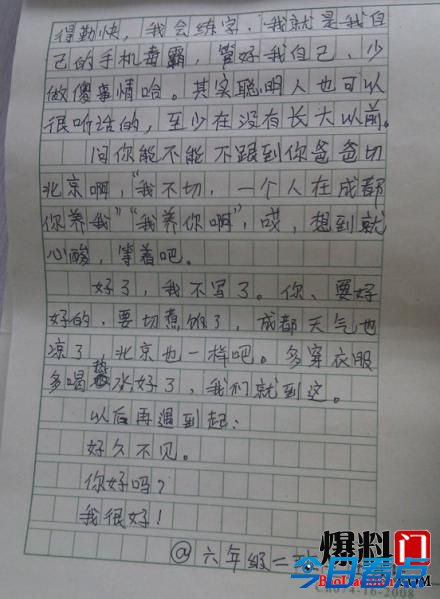 得勤快，我会练字，我就是我自
己的手机毒霸，管好我自己、少
做傻事情哈。其实聪明人也可以
很听话的，至少在没有长大以前。
问你能不能不跟到你爸爸切
北京啊，“我不切，一个人在成都
你养我”“我养你啊”，哎，想到就
心酸，等着吧。
好了，我不写了。你、要好
好的，要切煮饭了，成都天气也
凉了，北京也一样吧。多穿衣服
多喝热水好了，我们就到这。
以后再遇到起：
好久不见。
你好吗？
我很好！
@六年级二
爆料门
今日看点